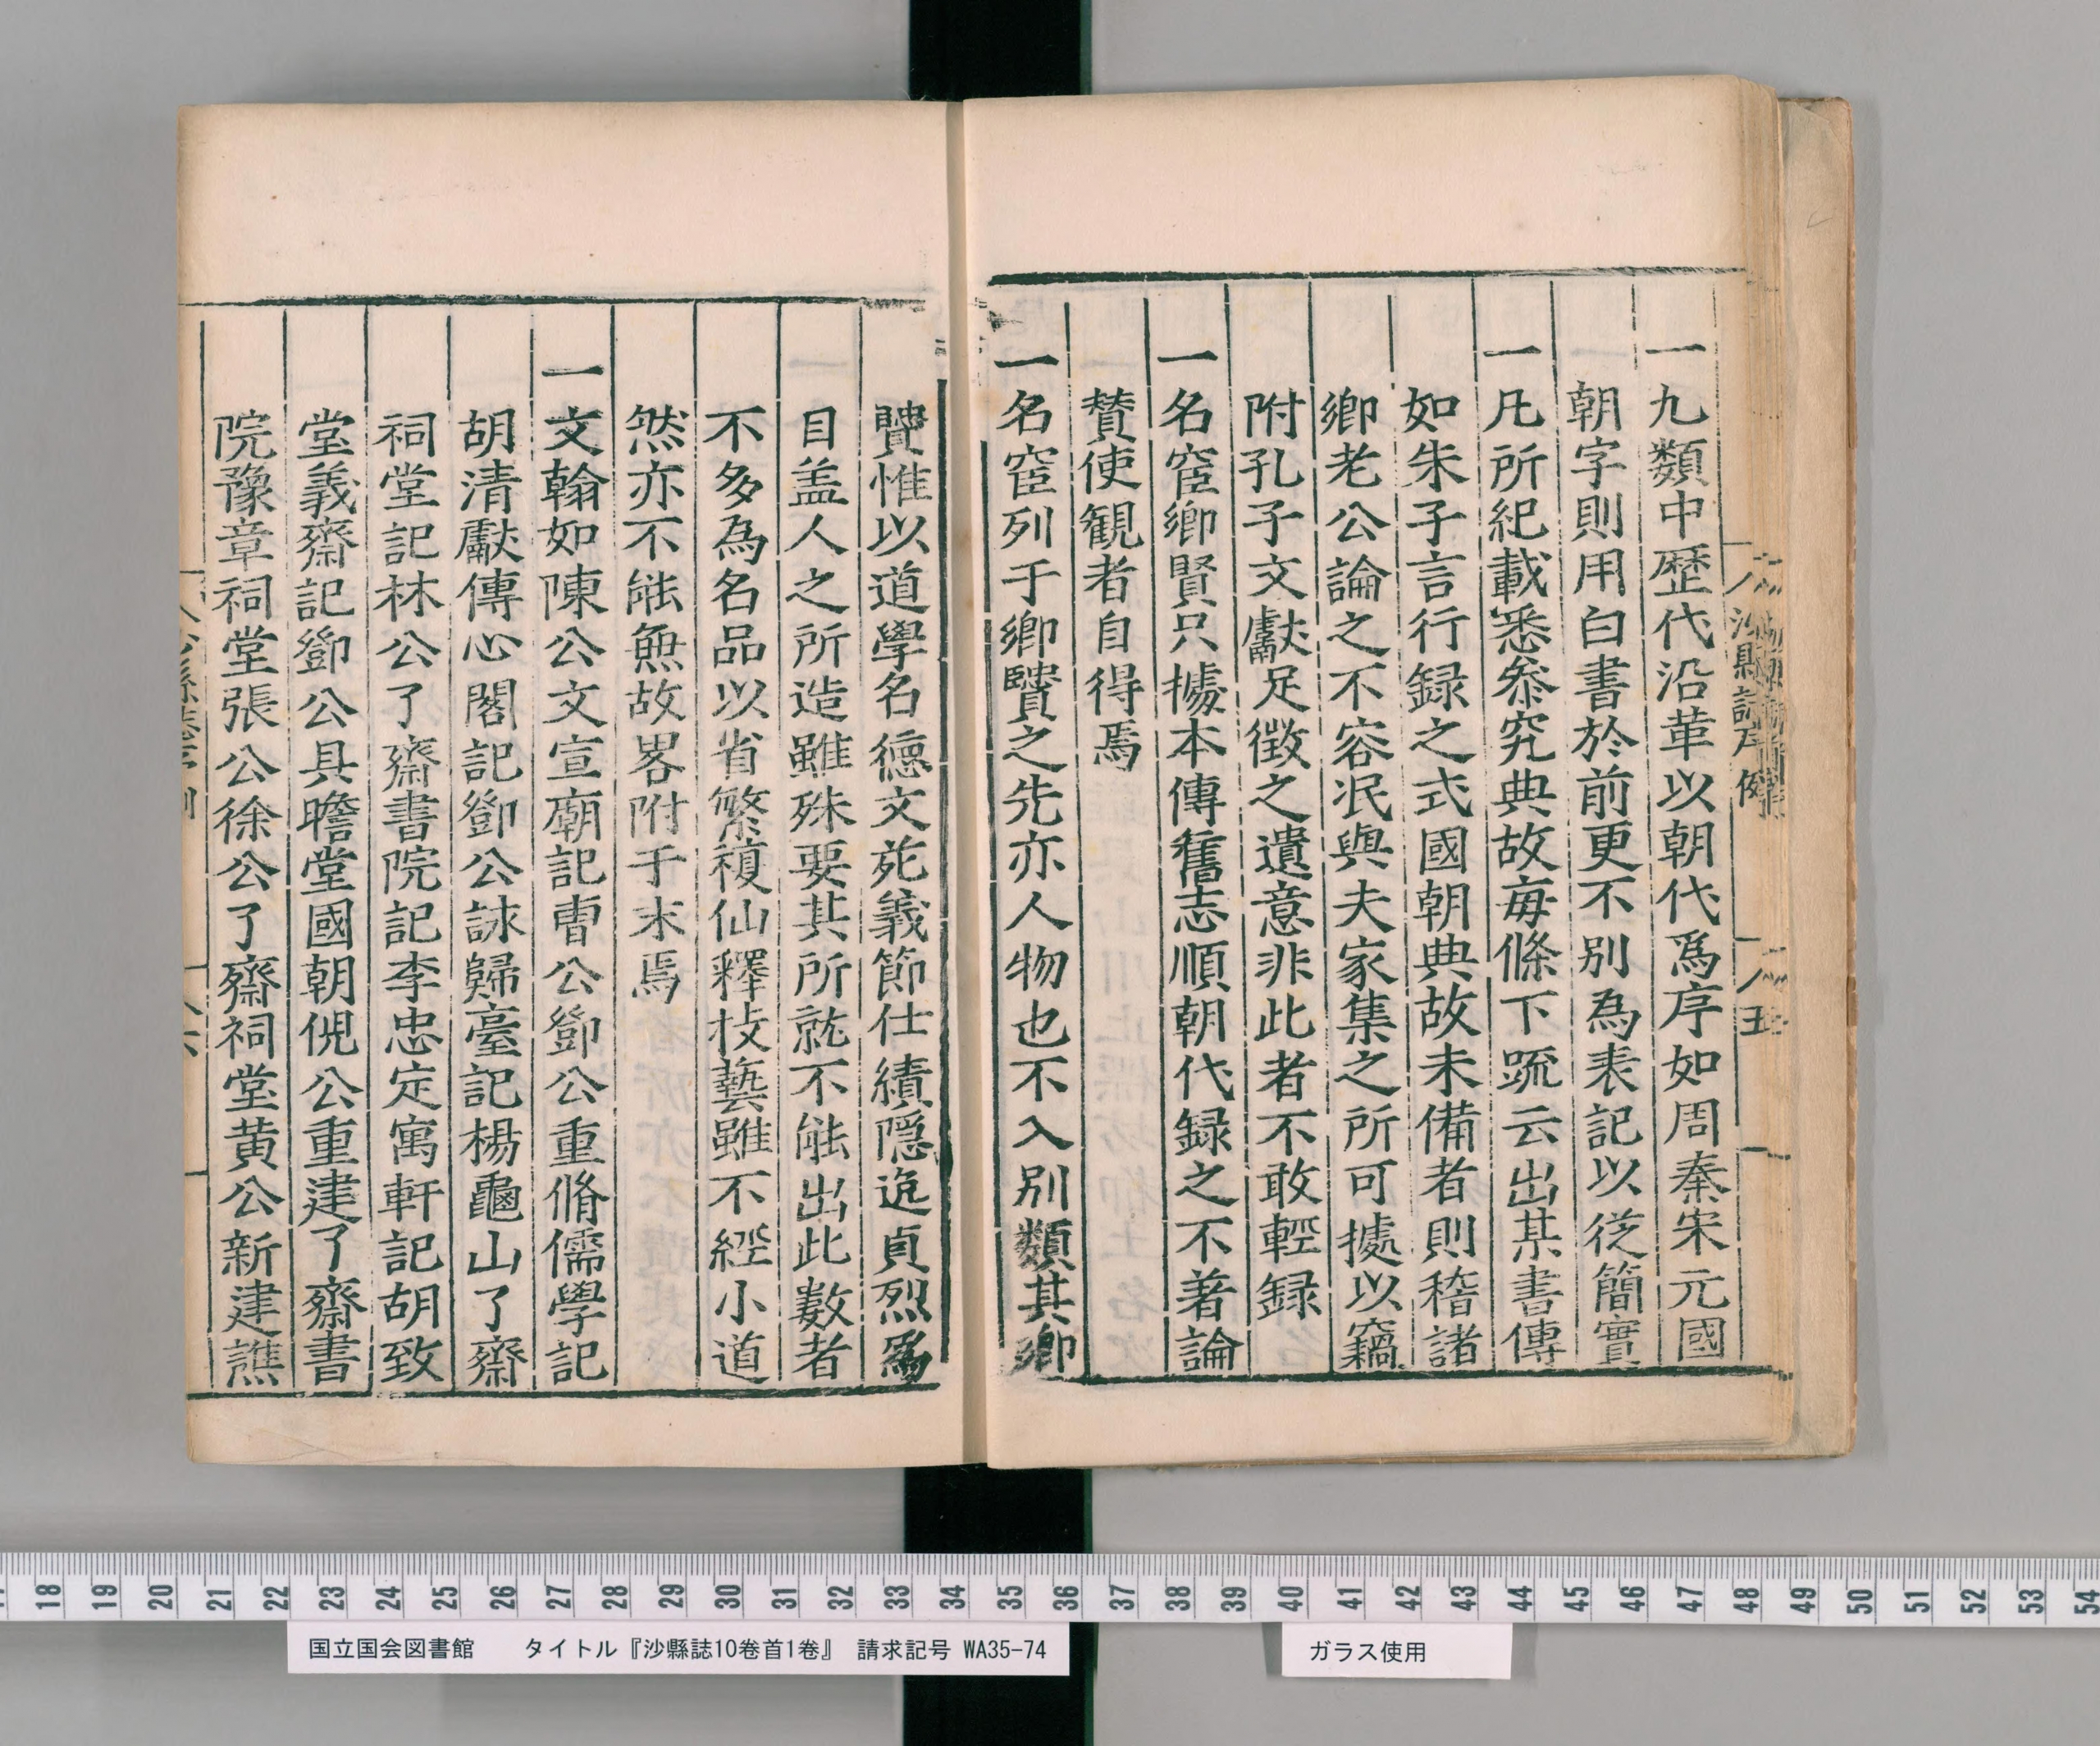 一九類中歷代沿革以朝代爲序如周秦宋元國
朝字則用白書於前更不別為表記以從簡實
一凡所紀載悉叅究典故每條下䟽云出某書傳
如朱子言行録之式國朝典故未備者則稽諸
鄉老公論之不容泯與夫家集之所可據以竊
附孔子文獻足徵之遺意非此者不敢輕録
一名宦鄉賢只據本傳舊志順朝代録之不著論
賛使観者自得焉
一名宦列于鄉賢之先亦人物也不入別類其鄉
賢惟以道學名德文苑義節仕績隠逸貞烈爲
目盖人之所造雖殊要其所就不能出此數者
不多為名品以省繁複仙釋技藝雖不經小道
然亦不能無故畧附于末焉
一文翰如陳公文宣廟記曹公鄧公重脩儒學記
胡清獻傳心閣記鄧公詠歸臺記楊龜山了齋
祠堂記林公了齋書院記李忠定寓軒記胡致
堂義齋記鄧公具瞻堂國朝倪公重建了齋書
院豫章祠堂張公徐公了齋祠堂黄公新建譙
沙縣誌凡例
五
六
国立国会図書館 タイトル『沙縣誌10巻首1巻』 請求記号 WA35-74
ガラス使用
17 18 19 20 21 22 23 24 25 26 27 28 29 30 31 32 33 34 35 36 37 38 39 40 41 42 43 44 45 46 47 48 49 50 51 52 53 54